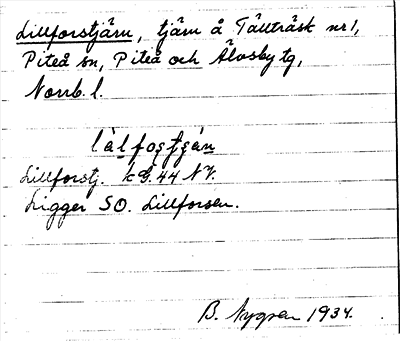 Lillforstjärn, tjärn å Tällträsk nr 1,
Piteå sn, Piteå och Älvsby tg,
Norrb. l.
Lillforstj. kbl. 44 NV.
Ligger SO. Lillforsen.
B. Nygren 1934.